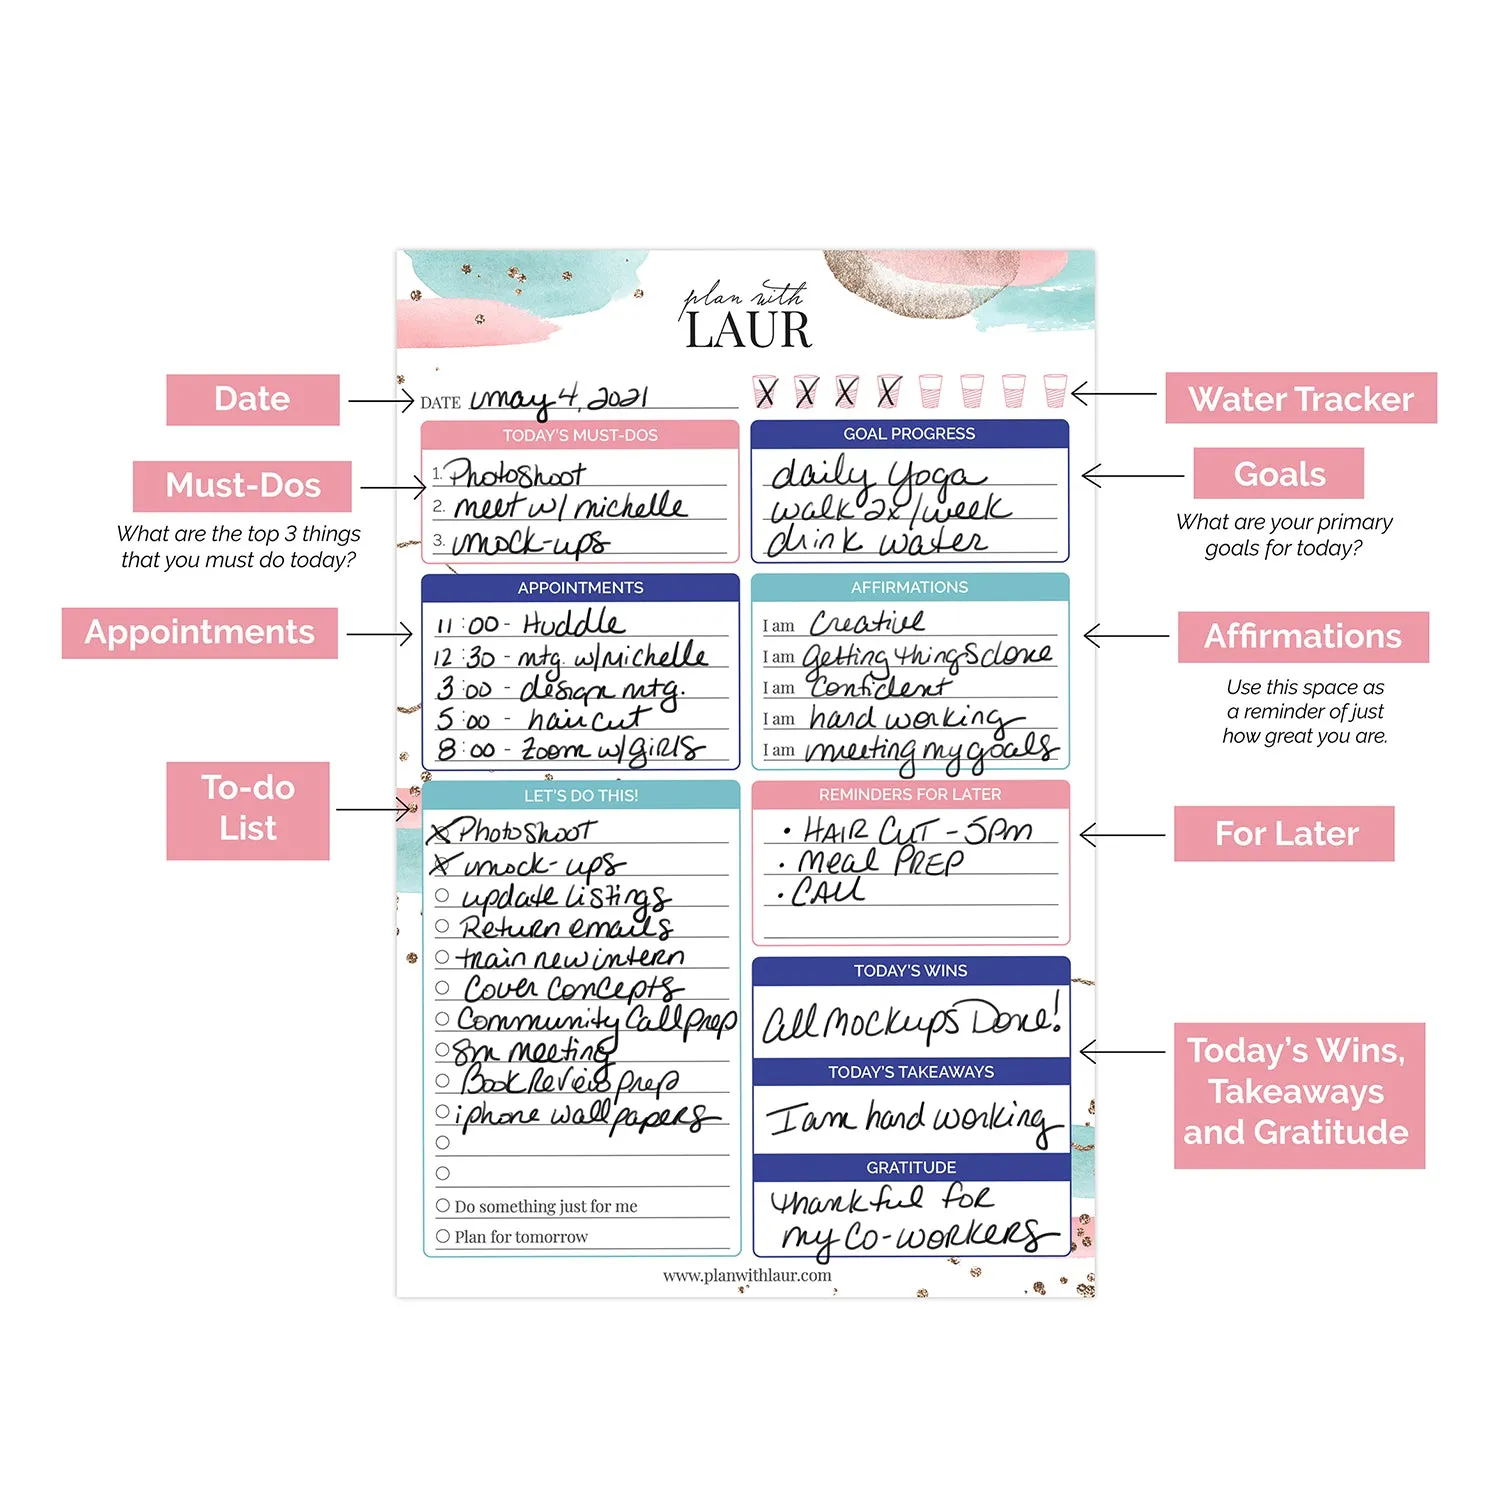 plan with
LAUR
Date
DATE may 4, 2021
Water Tracker
Must-Dos
What are the top 3 things
that you must do today?
TODAY'S MUST-DOS
1. Photoshoot
2. meet w/ michelle
3. mock-ups
GOAL PROGRESS
daily yoga
walk 2x/week
drink water
Goals
What are your primary
goals for today?
Appointments
APPOINTMENTS
11:00 - Huddle
12:30 - mtg. w/Michelle
3:00 - design mtg.
5:00 - haircut
8:00 - Zoom w/girls
AFFIRMATIONS
I am Creative
I am getting things done
I am Confident
I am hard working
I am meeting my goals
Affirmations
Use this space as
a reminder of just
how great you are.
To-do
List
LET'S DO THIS!
Photoshoot
mock-ups
update listings
Return emails
train new intern
Cover Concepts
Community Call prep
Sm meeting
Book Review prep
iphone wallpapers
Do something just for me
Plan for tomorrow
REMINDERS FOR LATER
• HAIR CUT - 5pm
• Meal PREP
• CALL
For Later
TODAY'S WINS
All Mockups Done!
TODAY'S TAKEAWAYS
I am hard working
GRATITUDE
thankful for
my co-workers
Today's Wins,
Takeaways
and Gratitude
www.planwithlaur.com